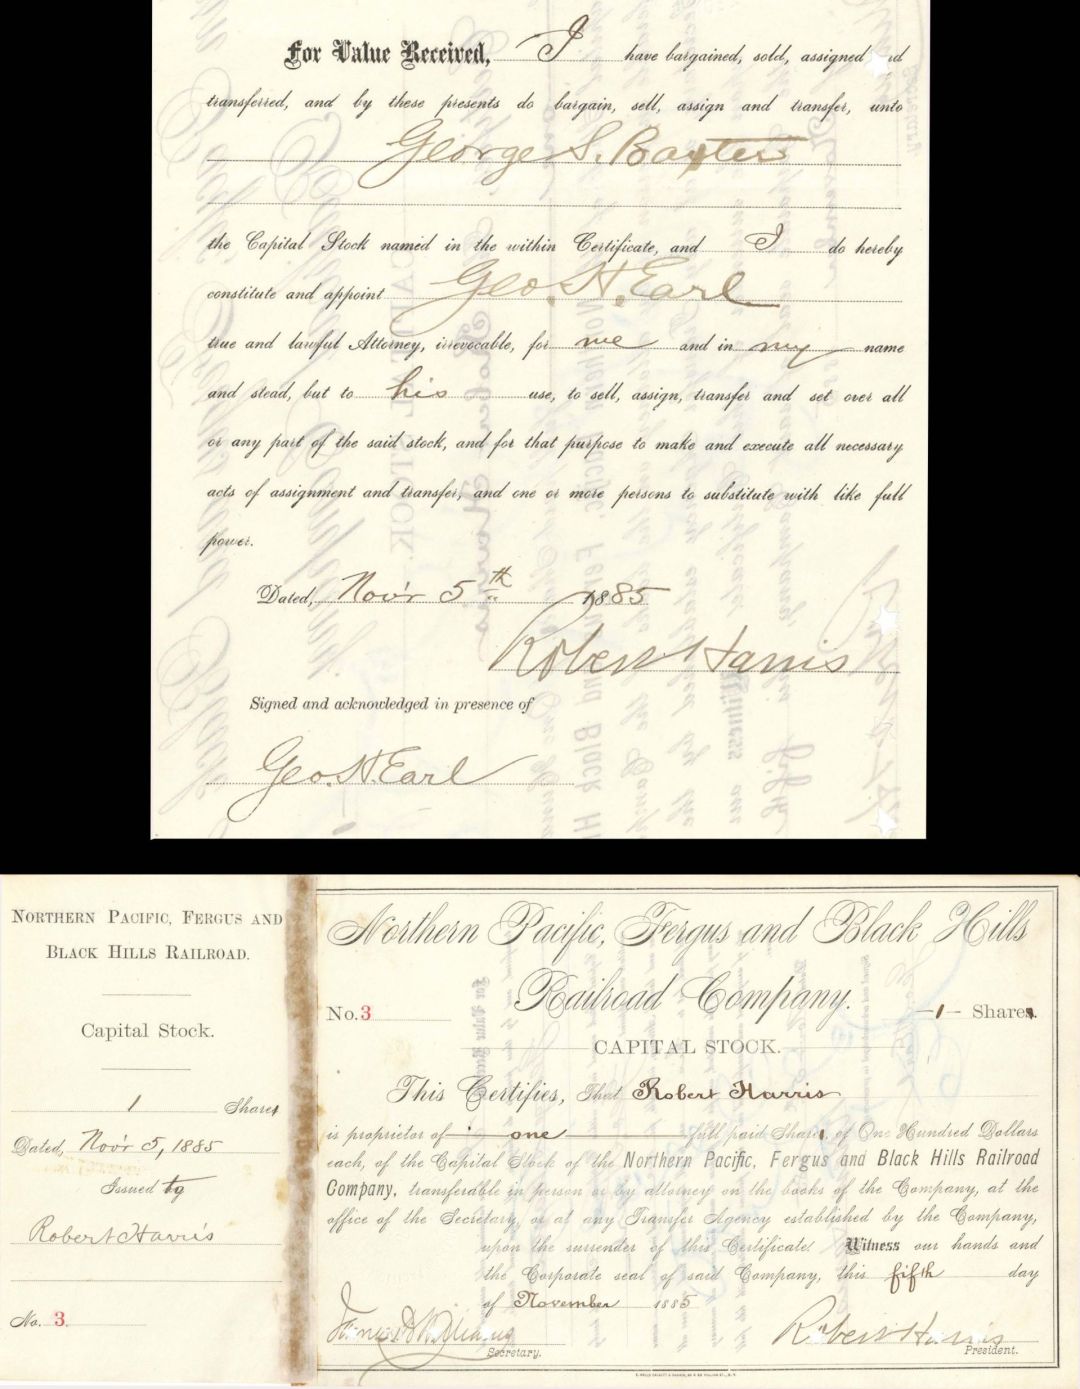 For Value Received, I have bargained, sold, assigned nd
transferred, and by these presents do bargain, sell, assign and transfer, unto
George S. Baxter
the Capital Stock named in the within Certificate, and I do hereby
constitute and appoint Geo. H. Earl
true and lawful Attorney, irrevocable, for me and in my name
and stead, but to his use, to sell, assign, transfer and set over all
or any part of the said stock, and for that purpose to make and execute all necessary
acts of assignment and transfer, and one or more persons to substitute with like full
power.
Dated, Nov'r 5th 1885
Robert Harris
Signed and acknowledged in presence of
Geo. H. Earl
NORTHERN PACIFIC, FERGUS AND
BLACK HILLS RAILROAD.
Capital Stock.
1 Shares
Dated, Nov'r 5, 1885
Issued to
Robert Harris
No. 3.
Northern Pacific, Fergus and Black Hills
Railroad Company.
No. 3
-1- Shares.
CAPITAL STOCK.
This Certifies, That Robert Harris
is proprietor of one full paid Share, of One Hundred Dollars
each, of the Capital Stock of the Northern Pacific, Fergus and Black Hills Railroad
Company, transferable in person or by attorney on the books of the Company, at the
office of the Secretary, or at any Transfer Agency established by the Company,
upon the surrender of this Certificate. Witness our hands and
the Corporate seal of said Company, this fifth day
of November 1885
Robert Harris
Secretary.
President.